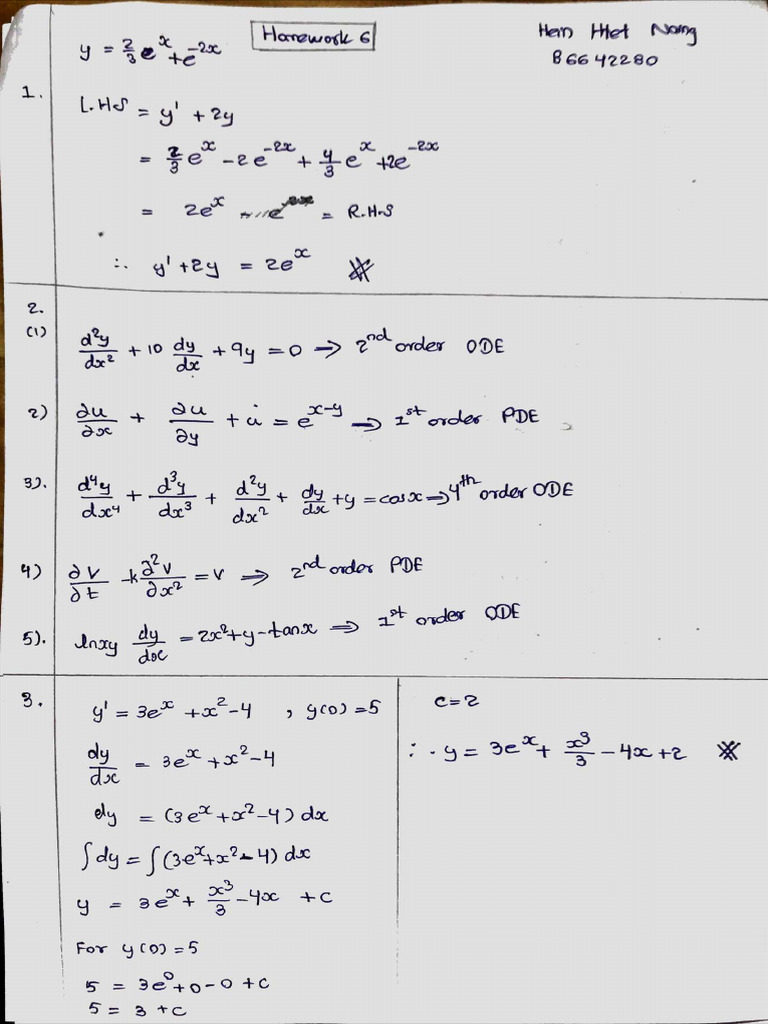 Homework 6
Hein Htet Naing
B6642280
y = 2/3 e^x + e^-2x
1.
L.H.S = y' + 2y
= 2/3 e^x - 2e^-2x + 4/3 e^x + 2e^-2x
= 2e^x = R.H.S
∴ y' + 2y = 2e^x
2.
(1) d²y/dx² + 10 dy/dx + 9y = 0 → 2nd order ODE
2) ∂u/∂x + ∂u/∂y + u = e^x-y → 1st order PDE
3). d⁴y/dx⁴ + d³y/dx³ + d²y/dx² + dy/dx + y = cosx ⇒ 4th order ODE
4) ∂v/∂t - k ∂²v/∂x² = v ⇒ 2nd order PDE
5). lnxy dy/dx = 2x² + y - tanx ⇒ 1st order ODE
3.
y' = 3e^x + x² - 4 , y(0) = 5
dy/dx = 3e^x + x² - 4
dy = (3e^x + x² - 4) dx
∫dy = ∫(3e^x + x² - 4) dx
y = 3e^x + x³/3 - 4x + c
For y(0) = 5
5 = 3e⁰ + 0 - 0 + c
5 = 3 + c
c = 2
∴ y = 3e^x + x³/3 - 4x + 2